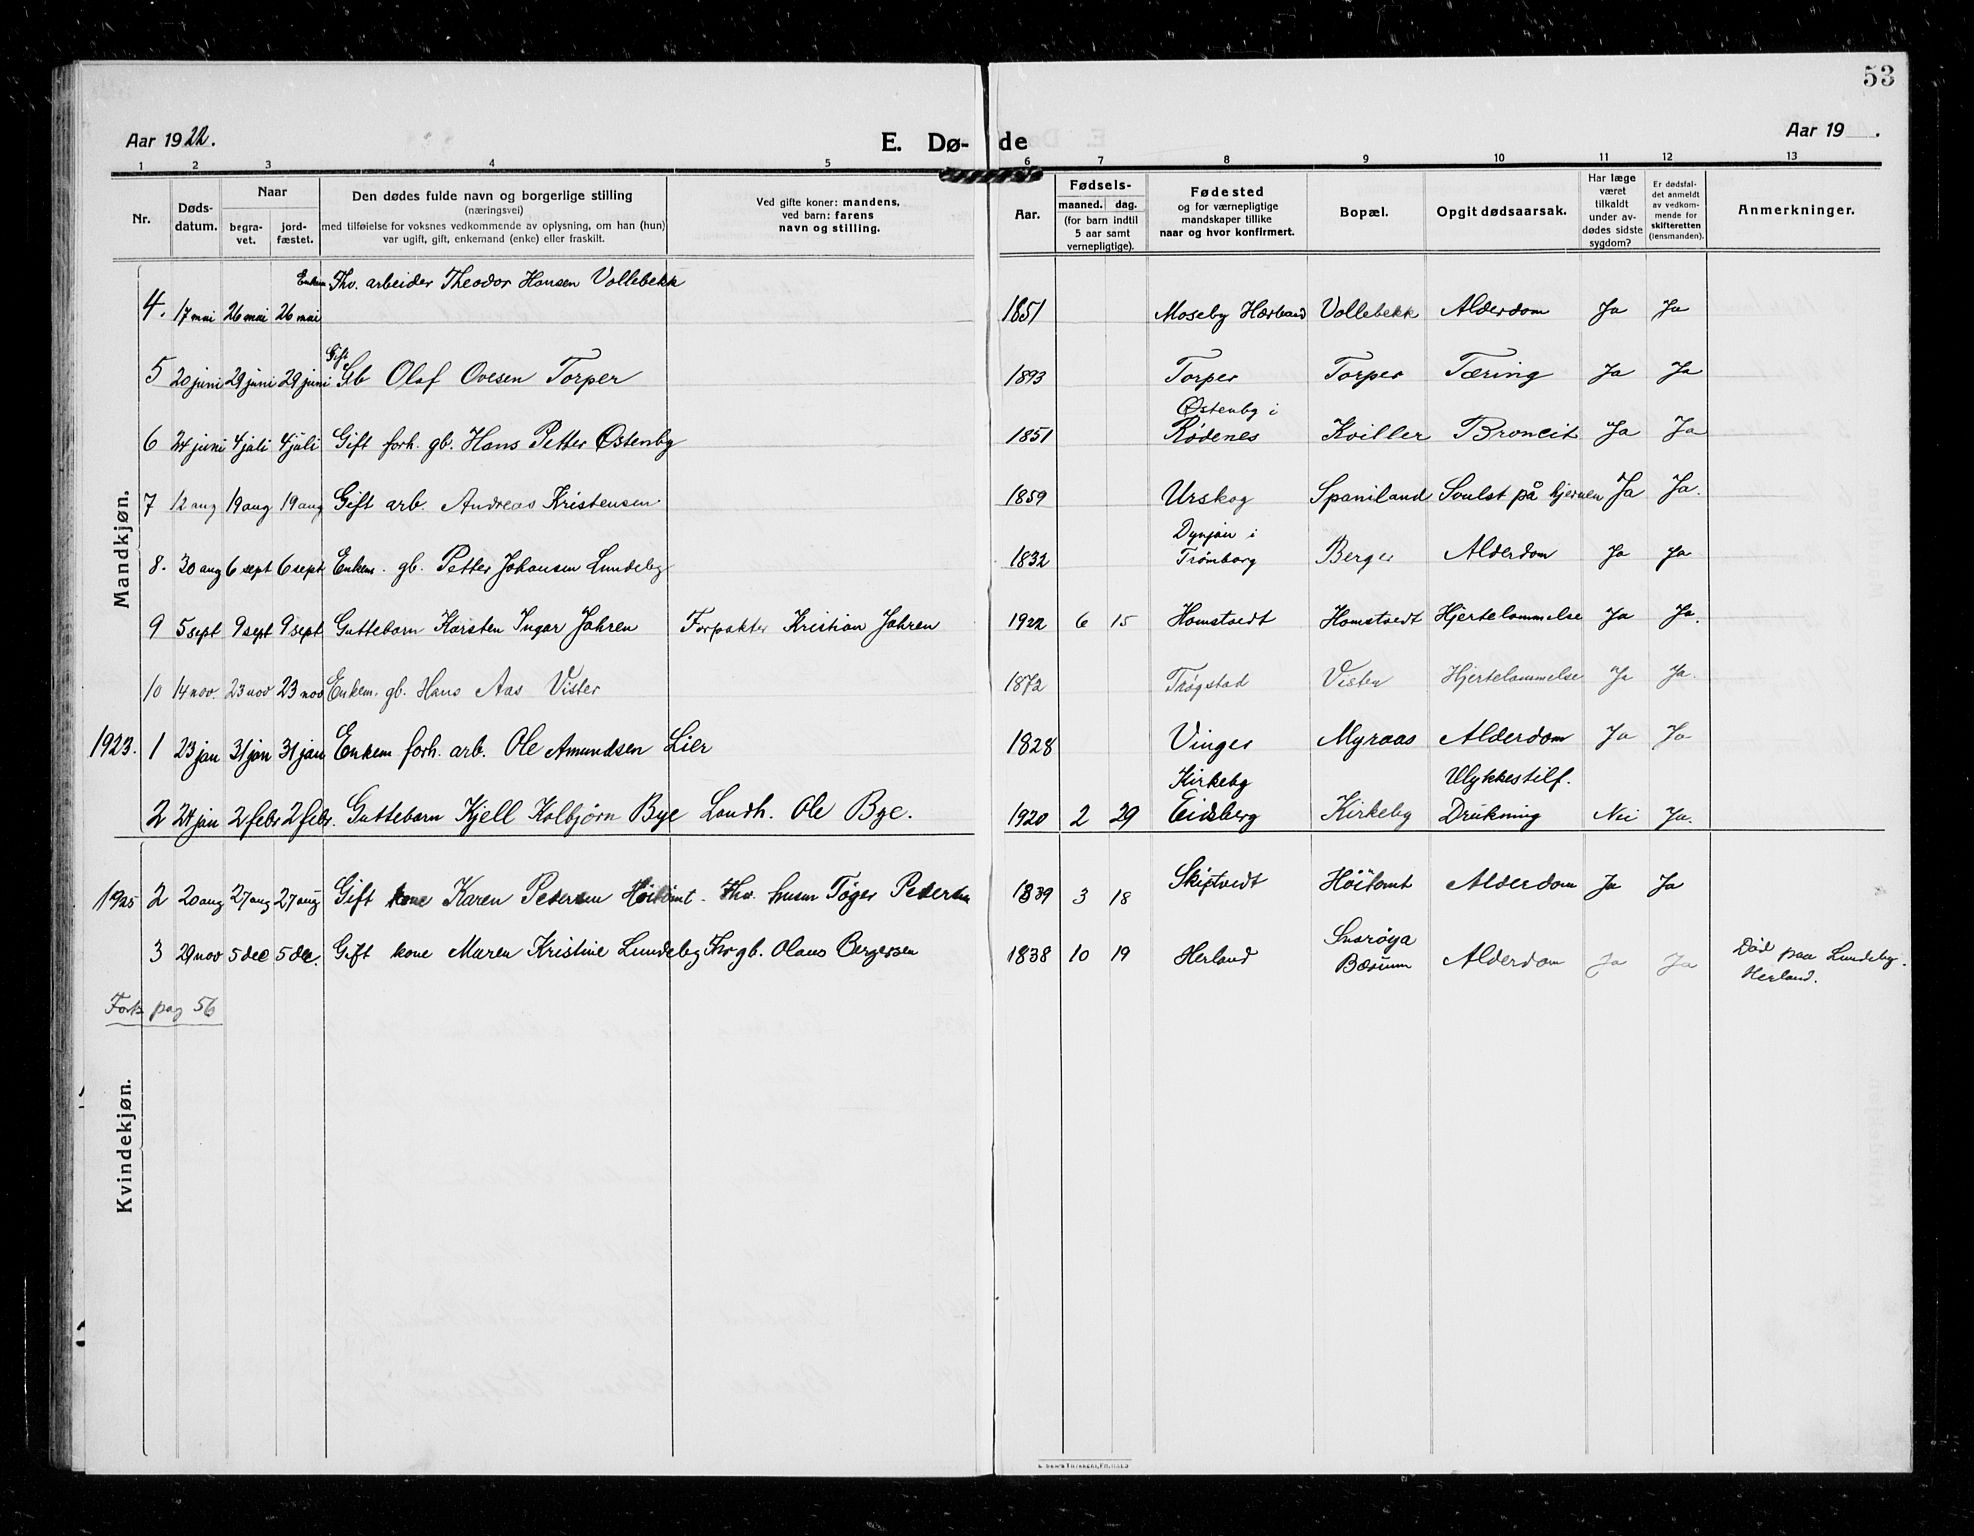 53
Aar 1922.
E. Dø- de
Aar 19 .
1 2 3 4 5 6 7 8 9 10 11 12 13
Nr.
Døds-
datum.
Naar
begra-
vet.
jord-
fæstet.
Den dødes fulde navn og borgerlige stilling
(næringsvei)
med tilføielse for voksnes vedkommende av oplysning, om han (hun)
var ugift, gift, enkemand (enke) eller fraskilt.
Ved gifte koner: mandens,
ved barn: farens
navn og stilling.
Aar.
Fødsels-
maaned. dag.
(for barn indtil
5 aar samt
vernepligtige).
Fødested
og for værnepligtige
mandskaper tillike
naar og hvor konfirmert.
Bopæl.
Opgit dødsaarsak.
Har læge
været
tilkaldt
under av-
dødes sidste
sygdom?
Er dødsfal-
det anmeldt
av vedkom-
mende for
skifteretten
(lensmanden).
Anmerkninger.
Mandkjøn.
Enkem. Fhv. arbeider Theodor Hansen Vollebekk
4. 17 mai 26 mai 26 mai 1851 Moseby Hærland Vollebekk Alderdom Ja Ja
Gift
5 20 juni 29 juni 29 juni Gb Olaf Ovesen Torper 1893 Torper Torper Tæring Ja Ja
Østenby i
6 24 juni 4 juli 4 juli Gift forh. gb. Hans Petter Østenby 1851 Rødenes Kviller Broncit Ja Ja
7 12 aug 19 aug 19 aug Gift arb. Andreas Kristensen 1859 Urskog Spaniland Svulst på hjernen Ja Ja.
Dynjan i
8. 30 aug 6 sept 6 sept Enkem. gb. Petter Johansen Lundeby 1832 Trømborg Berger Alderdom Ja Ja
9 5 sept 9 sept 9 sept Guttebarn Karsten Ingar Jahren Forpakter Kristian Jahren 1922 6 15 Homstvedt Homstvedt Hjertelammelse Ja Ja.
10 14 nov. 23 nov 23 nov Enkem. gb. Hans Aas Vister 1872 Trøgstad Vister Hjertelammelse Ja Ja.
1923. 1 23 jan 31 jan 31 jan Enkem forh. arb. Ole Amundsen Lier 1828 Vinger Myraas Alderdom Ja Ja
Kirkeby Ulykkestilf.
2 24 jan 2 febr 2 febr. Guttebarn Kjell Kolbjørn Bye Landh. Ole Bye. 1920 2 29 Eidsberg Kirkeby Drukning Nei Ja.
1925 2 20 aug 27 aug 27 aug Gift kone Karen Petersen Höitomt. Fhv. husm Tøger Pedersen 1839 3 18 Skiptvedt Höitomt Alderdom Ja Ja
3 29 nov 5 dec 5 dec. Gift kone Maren Kristine Lundeby Fhv gb. Olaus Bergersen 1838 10 19 Herland Snarøya
Bærum Alderdom Ja Ja Död paa Lundeby.
Herland.
Forts pag 56
Kvindekjøn.